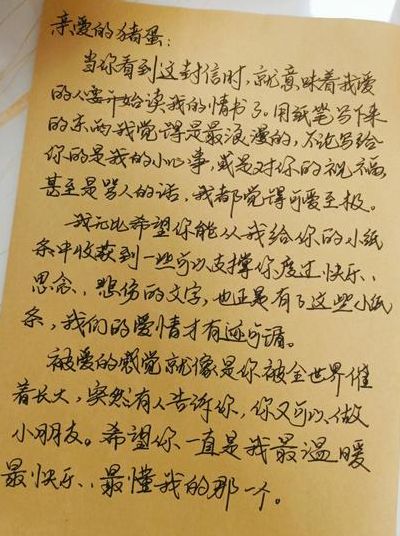 亲爱的猪蛋：
当你看到这封信时，就意味着我爱
的人要开始读我的情书了。用纸笔写下来
的东西，我觉得是最浪漫的，不论写给
你的是我的小心事，或是对你的祝福，
甚至是骂人的话，我都觉得可爱至极。
我无比希望你能从我给你的小纸
条中收获到一些可以支撑你度过快乐、
思念、悲伤的文字，也正是有了这些小纸
条，我们的爱情才有迹可循。
被爱的感觉就像是你被全世界催
着长大，突然有人告诉你，你又可以做
小朋友。希望你一直是我最温暖
最快乐、最懂我的那一个。